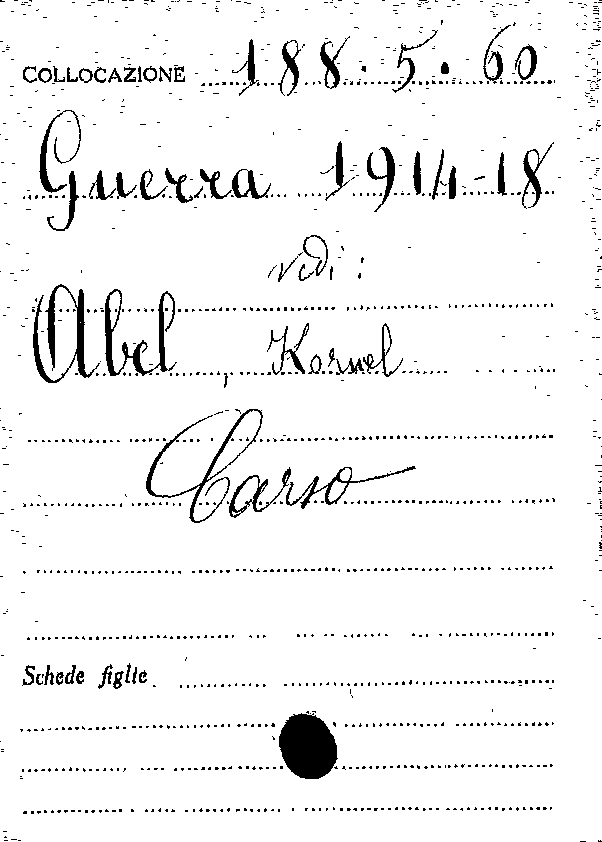 COLLOCAZIONE 188.5.60
Guerra 1914-18
vedi:
Abel, Kornel
Carso
Schede figlie